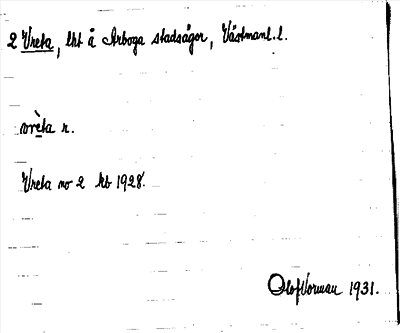 2 Vreta, lht å Arboga stadsägor, Västmanl. l.
vrèta r.
Vreta no 2 kb 1928.
Olof Norman 1931.